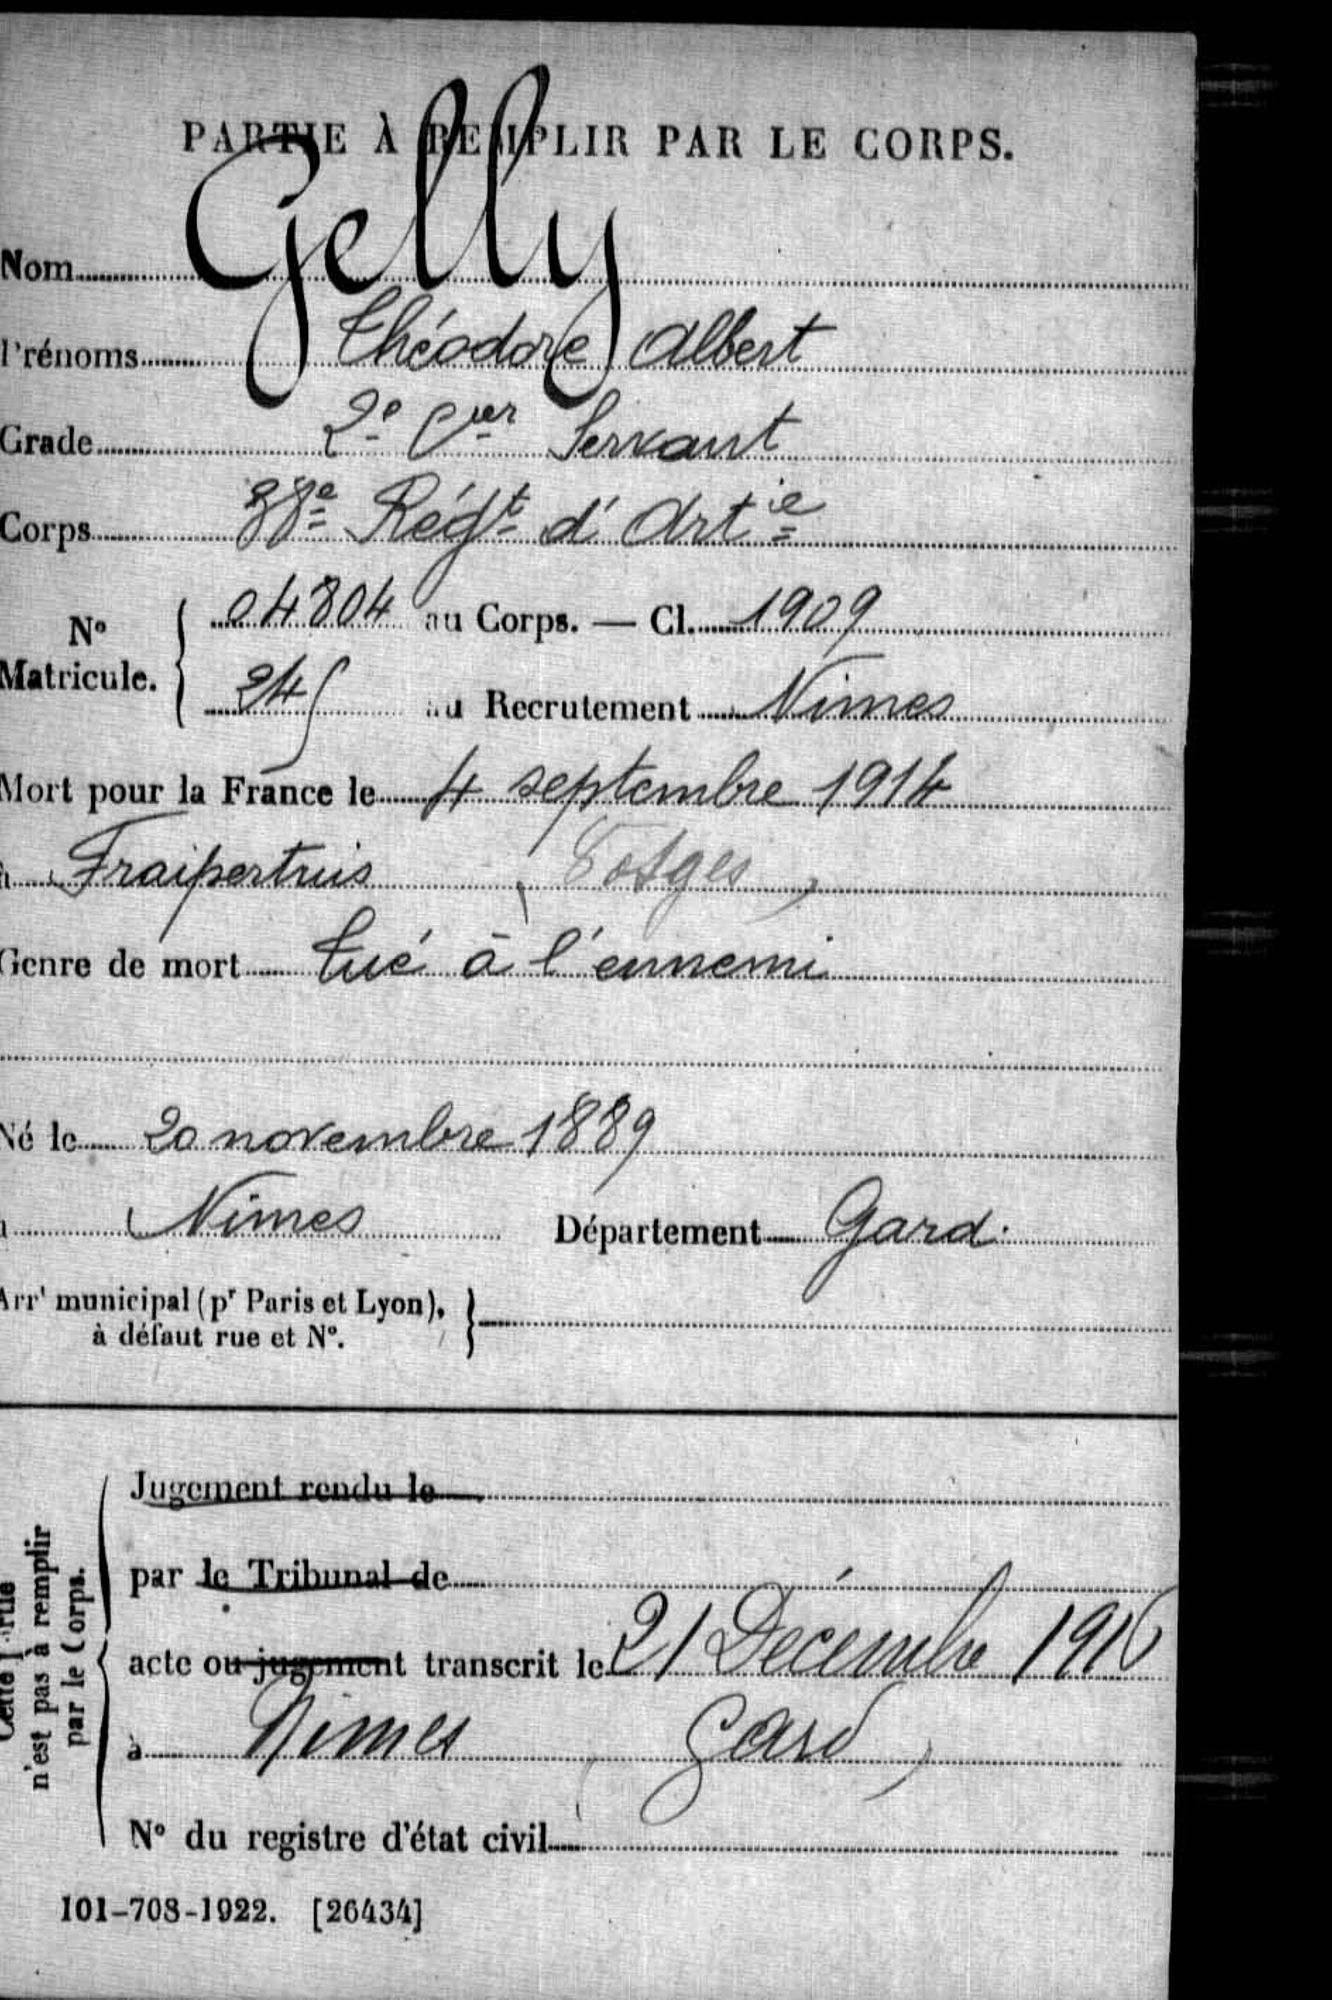 PARTIE À REMPLIR PAR LE CORPS.
Nom Gelly
Prénoms Théodore Albert
Grade 2e Cier Servant
Corps 38e Régt d'Artie
No Matricule. 04804 au Corps. — Cl. 1909
245 au Recrutement Nimes
Mort pour la France le 4 septembre 1914
à Fraipertuis (Vosges)
Genre de mort tué à l'ennemi
Né le 20 novembre 1889
à Nimes Département Gard.
Arrt municipal (pr Paris et Lyon),
à défaut rue et No.
Cette partie
n'est pas à remplir
par le Corps.
Jugement rendu le
par le Tribunal de
acte ou jugement transcrit le 21 Décembre 1916
à Nimes (Gard)
No du registre d'état civil
101-708-1922. [26434]